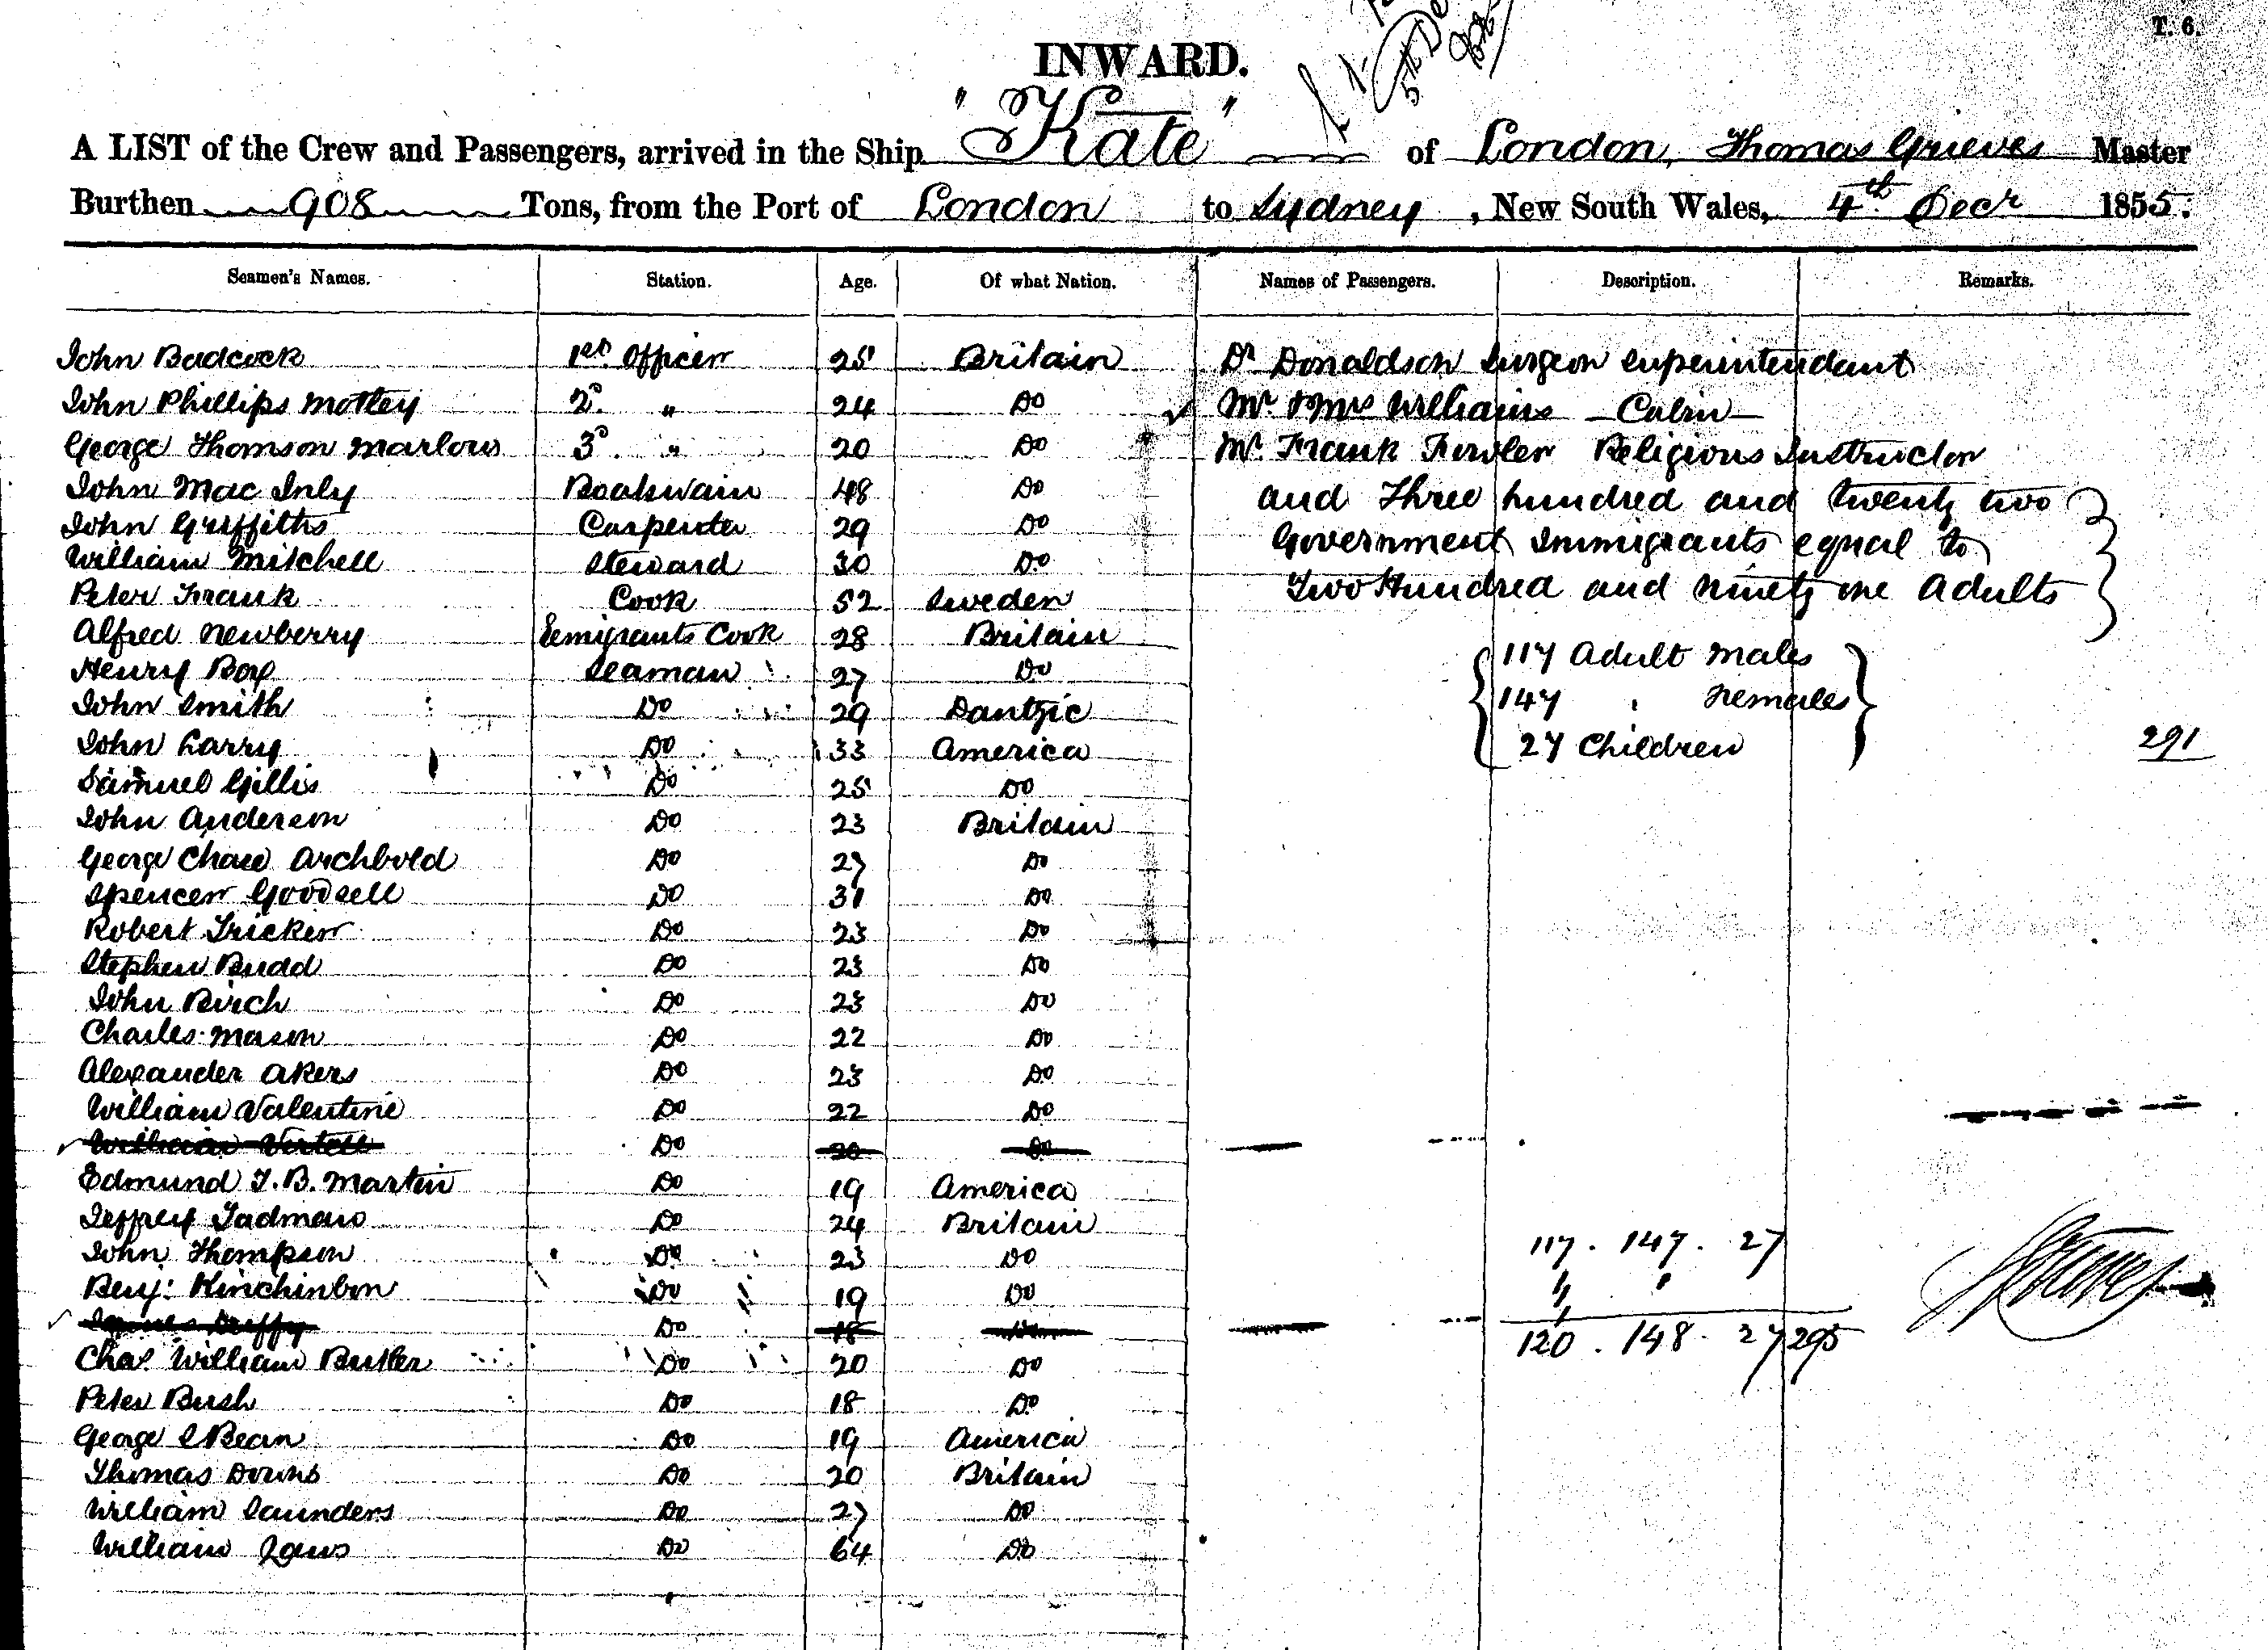 T. 6.
INWARD.
A LIST of the Crew and Passengers, arrived in the Ship "Kate" of London, Thomas Grieves Master
Burthen 908 Tons, from the Port of London to Sydney, New South Wales, 4th Decr 1855.
Seamen's Names. Station. Age. Of what Nation. Names of Passengers. Description. Remarks.
John Badcock 1st Officer 25 Britain Dr Donaldson Surgeon Superintendant
John Phillips Motley 2d " 24 Do Mr & Mrs Williams Cabin
George Thomson Marlow 3d " 20 Do Mr Frank Fowler Religious Instructor
John Mac Inly Boatswain 48 Do and Three hundred and twenty two
John Griffiths Carpenter 29 Do Government Immigrants equal to
William Mitchell Steward 30 Do Two Hundred and ninety one Adults
Peter Frank Cook 52 Sweden
Alfred Newberry Eemigrants Cook 28 Britain
Henry Box Seaman 27 Do 117 Adult Males
John Smith Do 29 Dantzic 147 " Females
John Larry Do 33 America 27 Children 291
Samuel Gillis Do 25 Do
John Anderson Do 23 Britain
George Chase Archbold Do 27 Do
Spencer Goodsell Do 31 Do
Robert Tricker Do 23 Do
Stephen Budd Do 23 Do
John Birch Do 23 Do
Charles Mason Do 22 Do
Alexander Akers Do 23 Do
William Valentine Do 22 Do
William Do 20 Do
Edmund T. B. Martin Do 19 America
Jeffrey Tadman Do 24 Britain
John Thompson Do 23 Do 117 . 147 . 27
Benj: Kinchinbon Do 19 Do
James Duffy Do 18 Do
Chas William Butler Do 20 Do 120 . 148 . 27 295
Peter Bush Do 18 Do
George S Bean Do 19 America
Thomas Downs Do 20 Britain
William Saunders Do 27 Do
William Laws Do 64 Do